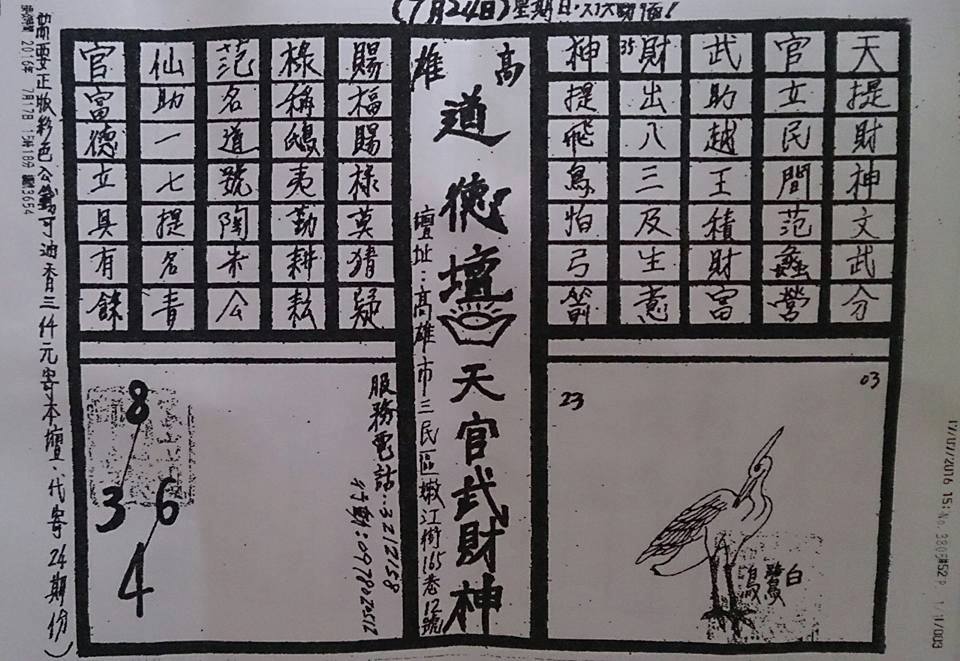 (7月24日)星期日.
天提財神文武分
官立民間范蠡營
武助越王積財富
35
財出八三及生意
神提飛鳥怕弓箭
03
23
白鷺鷥
高雄
道德壇 天官武財神
壇址:高雄市三民區嫩江街165巷12號
賜福賜祿莫猜疑
祿稱鴟夷勤耕耘
范名道號陶朱公
仙助一七提名青
官富德立具有餘
服務電話:3212158
8
3 6
4
需要正版彩色公籤可油香三仟元寄本壇.代寄24期份)
2016年 7月17日 15時18分
3654
17/07/2016 15: